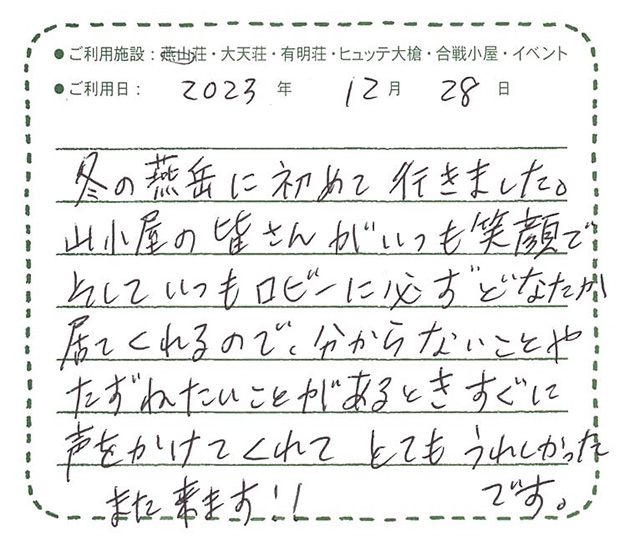 ● ご利用施設：燕山荘・大天荘・有明荘・ヒュッテ大槍・合戦小屋・イベント
● ご利用日： 2023 年 12 月 28 日
冬の燕岳に初めて行きました。
山小屋の皆さんがいつも笑顔で
そしていつもロビーに必ずどなたか
居てくれるので、分からないことや
たずねたいことがあるときすぐに
声をかけてくれて とても うれしかった
です。
また来ます!!